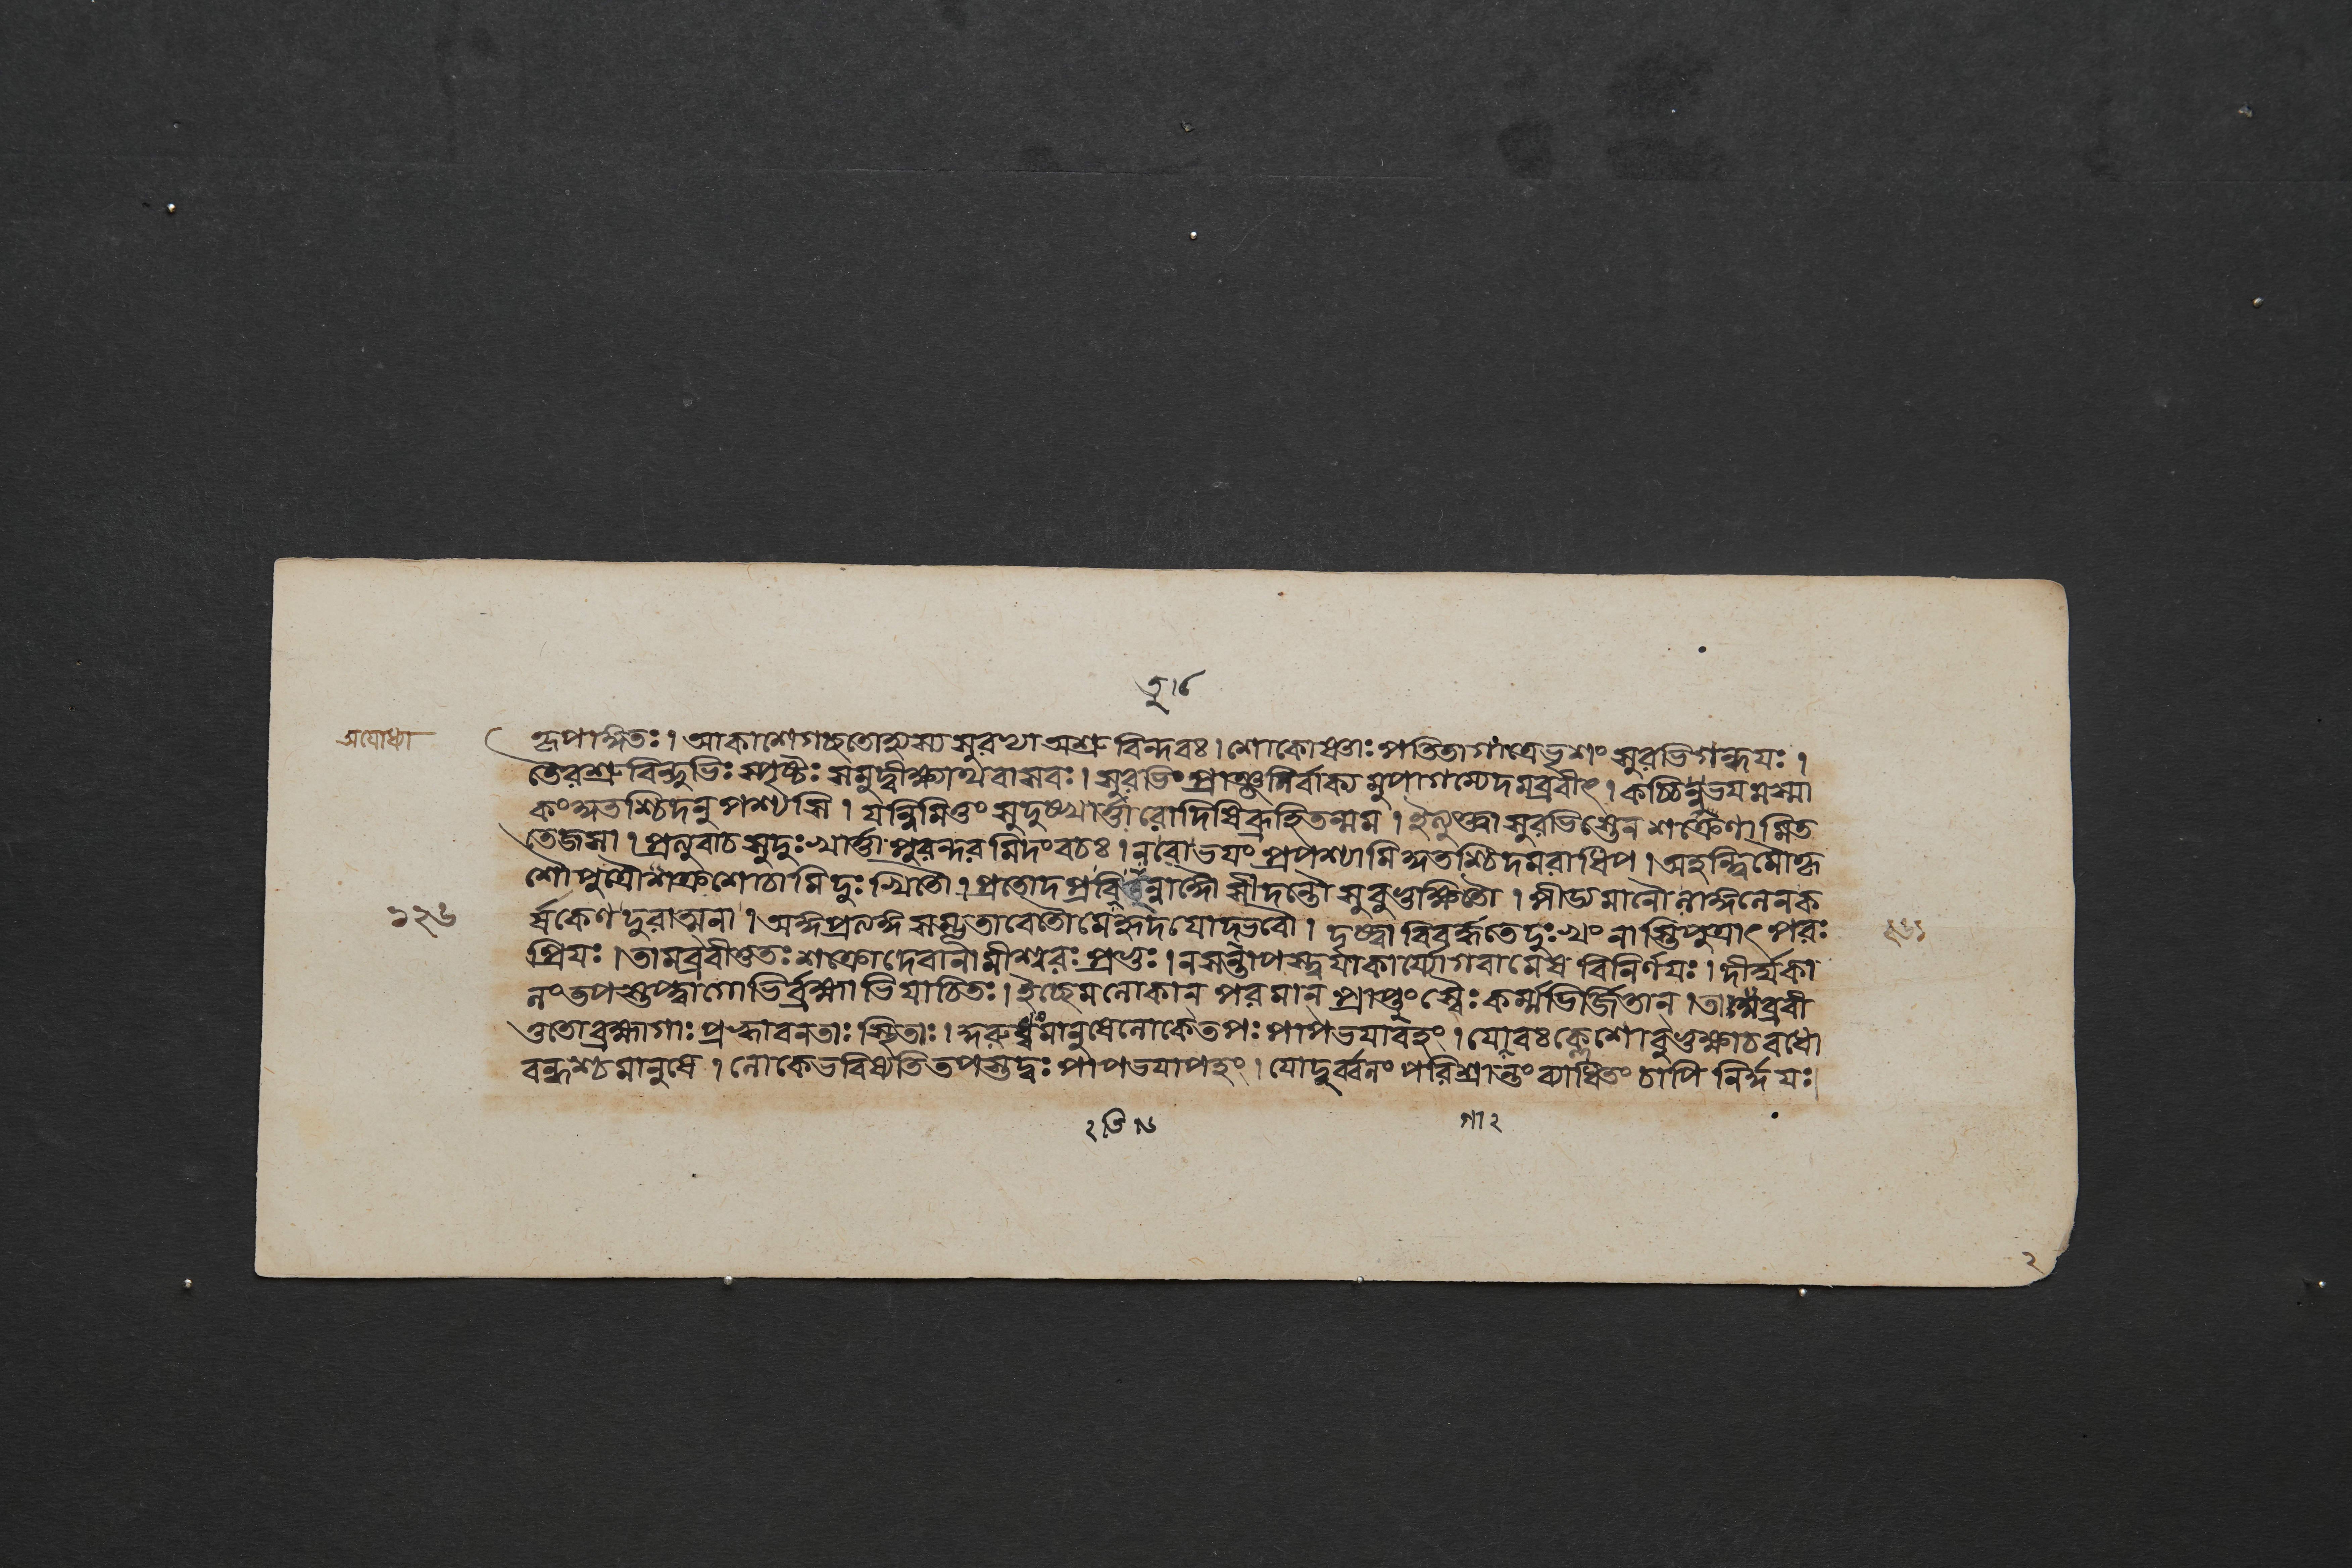 তু।৮
অযোধ্যা
আকাশে গচ্ছতোপ্যস্য সুরভ্যা অশ্রুবিন্দবঃ । শোকোষ্ণাঃ পতিতা গাত্রে ভৃশং সুরভিগন্ধয়ঃ ।
তৈরশ্রুবিন্দুভিঃ স্পৃষ্টঃ সমুদ্বীক্ষ্যাথ বাসবঃ । সুরভিং প্রাঞ্জলির্বাক্যমুপাগম্যেদমব্রবীৎ । কচ্চিন্নু ভয়মস্মা
কং কুতশ্চিদনুপশ্যসি । যন্নিমিত্তং সুদুঃখার্ত্তা রোদিষি ব্রূহি তন্মম । ইত্যুক্তা সুরভিস্তেন শক্রেণামিত
তেজসা । প্রত্যুবাচ সুদুঃখার্ত্তা পুরন্দরমিদং বচঃ । ন বো ভয়ং প্রপশ্যামি কুতশ্চিদমরাধিপ । অহন্ত্বিমৌ কৃ
শৌ পুত্রৌ শক্র শোচামি দুঃখিতৌ । প্রতোদপ্রবিভিন্নাঙ্গৌ সীদন্তৌ সুবুভুক্ষিতৌ । পীড্যমানৌ লাঙ্গলেন ক
১২৬
র্ষকেণ দুরাত্মনা । অঙ্গপ্রত্যঙ্গসম্ভূতাবেতৌ মে হৃদয়োদ্ভবৌ । দৃষ্ট্বা বিবর্দ্ধতে দুঃখং নাস্তি পুত্রাৎ পরঃ
প্রিয়ঃ । তামব্রবীত্ততঃ শক্রো দেবানামীশ্বরঃ প্রভুঃ । ন সন্তাপস্ত্বয়া কার্য্যো গবামেষ বিনির্ণয়ঃ । দীর্ঘকা
লং তপস্তপ্ত্বা গোভির্ব্রহ্মাভিযাচিতঃ । ইচ্ছেম লোকান্ পরমান্ প্রাপ্তুং স্বৈঃ কর্ম্মভির্জ্জিতান্ । তা অব্রবী
ত্ততো ব্রহ্মা গাঃ প্রহ্বাবনতাঃ স্থিতাঃ । কুরুধ্বং মানুষে লোকে তপঃ পাপভয়াবহং । যো বঃ ক্লেশো বুভুক্ষা চ বধো
বন্ধশ্চ মানুষে । লোকে ভবিষ্যতি তপস্তদ্বঃ পাপভয়াপহং । যো দুর্ব্বলং পরিশ্রান্তং ব্যাধিতং চাপি নির্দ্দয়ঃ
গা ২
২